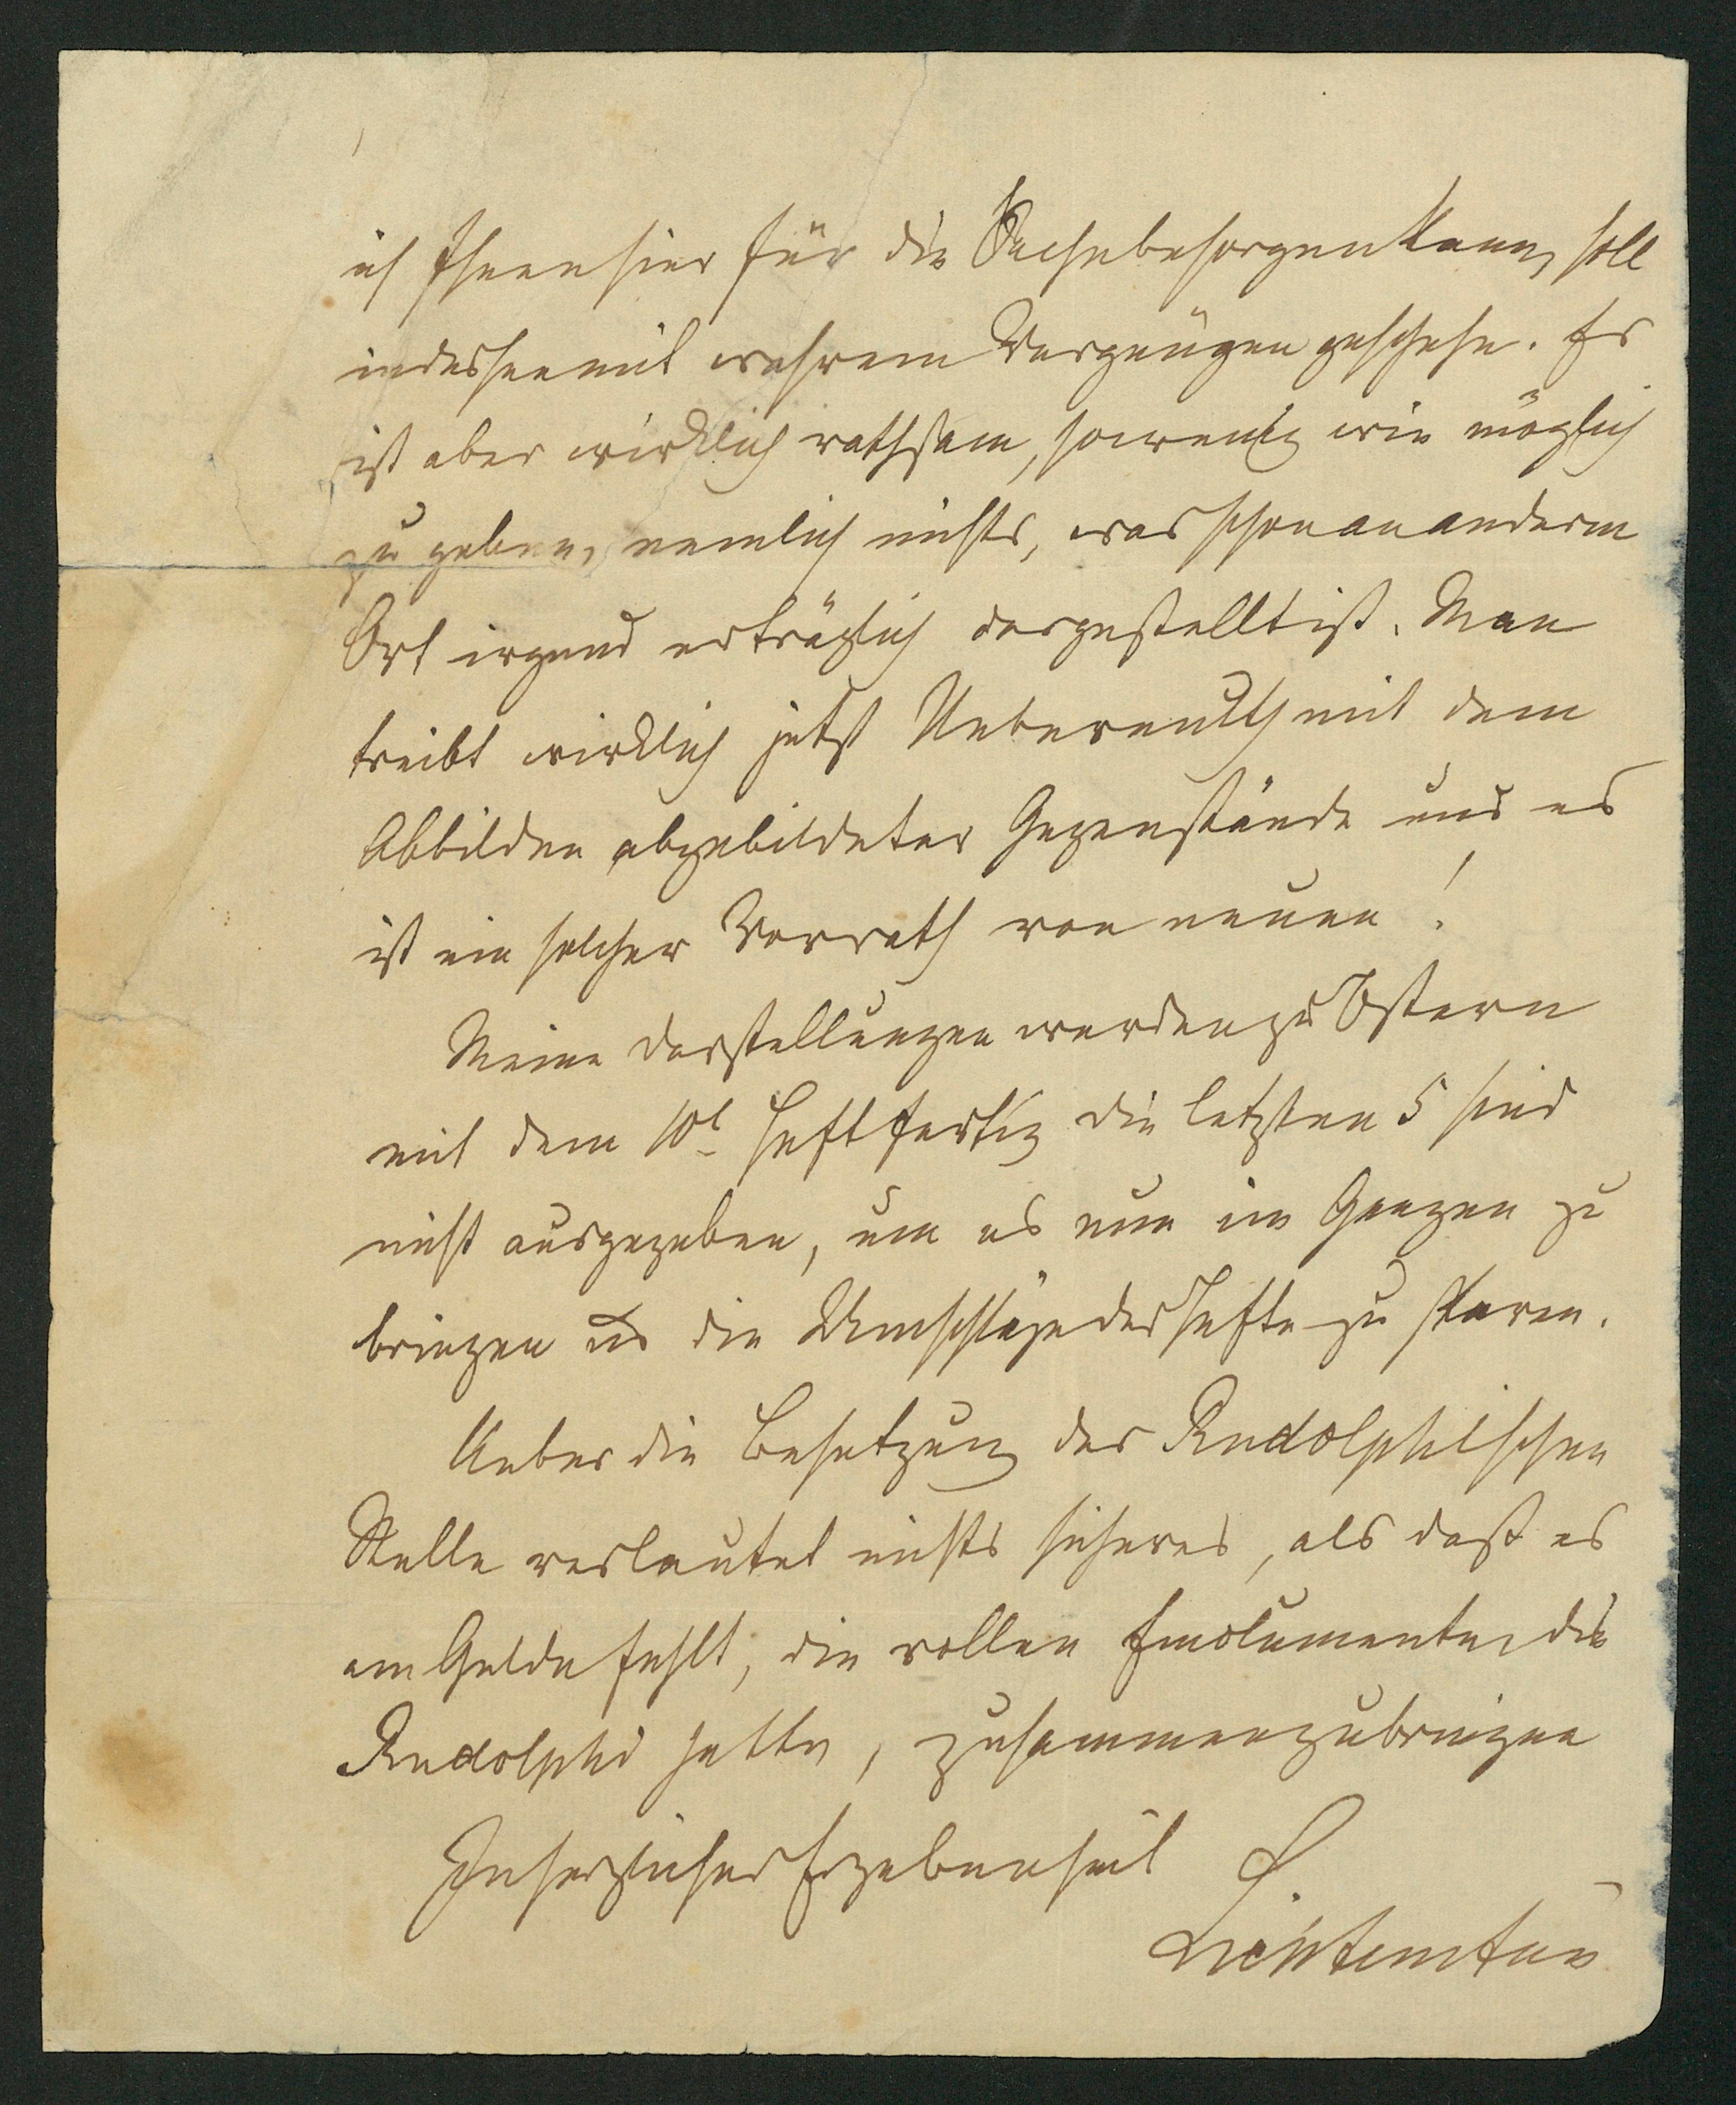 ich Ihnen hier für die Sache besorgen kann, soll
indessen mit wahrem Vergnügen geschehn. Es
ist aber wirklich rathsam, so wenig wie möglich
zu geben, nemlich nichts, was schon an anderm
Ort irgend erträglich dargestellt ist. Man
treibt wirklich jetzt Uebermuth mit dem
Abbilden abgebildeter Gegenstände und es
ist ein solcher Vorrath von neuen!
Meine Darstellungen werden zu Ostern
mit dem 10t Heft fertig die letzten 5 sind
nicht ausgegeben, um es nun im Ganzen zu
bringen und die Umschläge der Hefte zu sparen.
Ueber die Besetzung der Rudolphischen
Stelle verlautet nichts sicheres, als daß es
am Gelde fehlt, die vollen Emolumente, die
Rudolphi hatte, zusammenzubringen
In herzlicher Ergebenheit
Lichtenstein